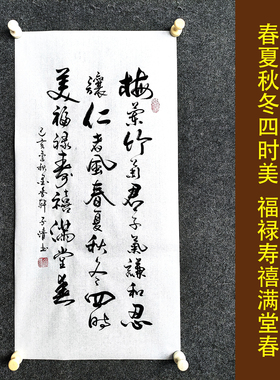 梅兰竹菊君子气謙和忍
讓仁者風春夏秋冬四時
美福禄寿禧满堂春
己亥
子清书
春夏秋冬四时美 福禄寿禧满堂春